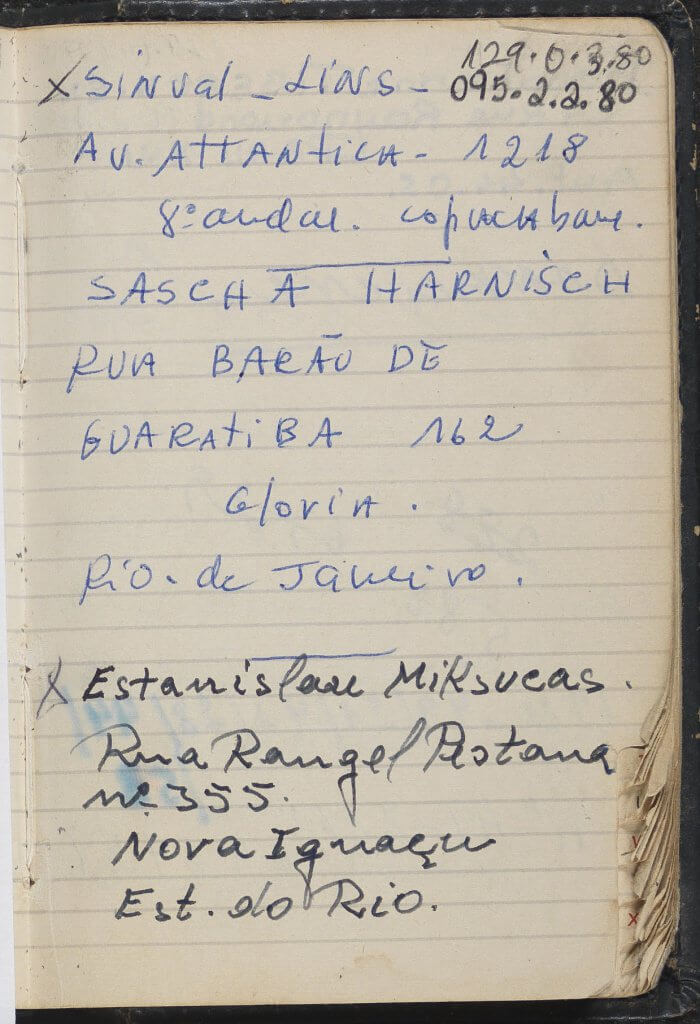 129.0.3.80
X Sinval - Lins - 095.2.2.80
AV. ATTANtiCA - 1218
8º andar. copacabana.
SASCHA HARNISCH
RUA BARÃO DE
GUARAtiBA 162
Gloria.
Rio. de Janeiro.
X Estanislau Miksucas.
Rua Rangel Pestana
nº 355.
Nova Iguaçu
Est. do Rio.